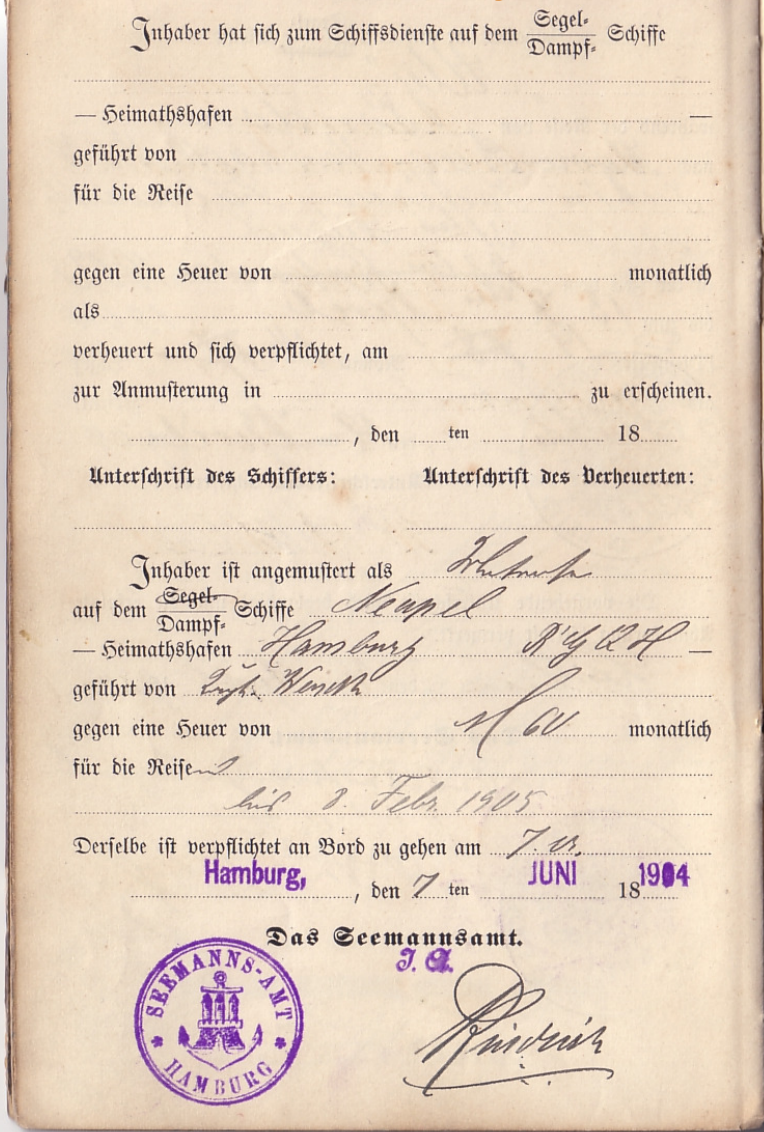 Inhaber hat sich zum Schiffsdienste auf dem Segel- Dampf- Schiffe
— Heimathshafen —
geführt von
für die Reise
gegen eine Heuer von monatlich
als
verheuert und sich verpflichtet, am
zur Anmusterung in zu erscheinen.
, den ten 18
Unterschrift des Schiffers: Unterschrift des Verheuerten:
Inhaber ist angemustert als
auf dem Segel- Dampf- Schiffe Neapel
— Heimathshafen Hamburg —
geführt von
gegen eine Heuer von M 60 monatlich
für die Reisen
bis 8. Febr. 1905
Derselbe ist verpflichtet an Bord zu gehen am 7.
Hamburg, , den 7 ten JUNI 18 1904
Das Seemannsamt.
I. A.
SEEMANNS-AMT
HAMBURG